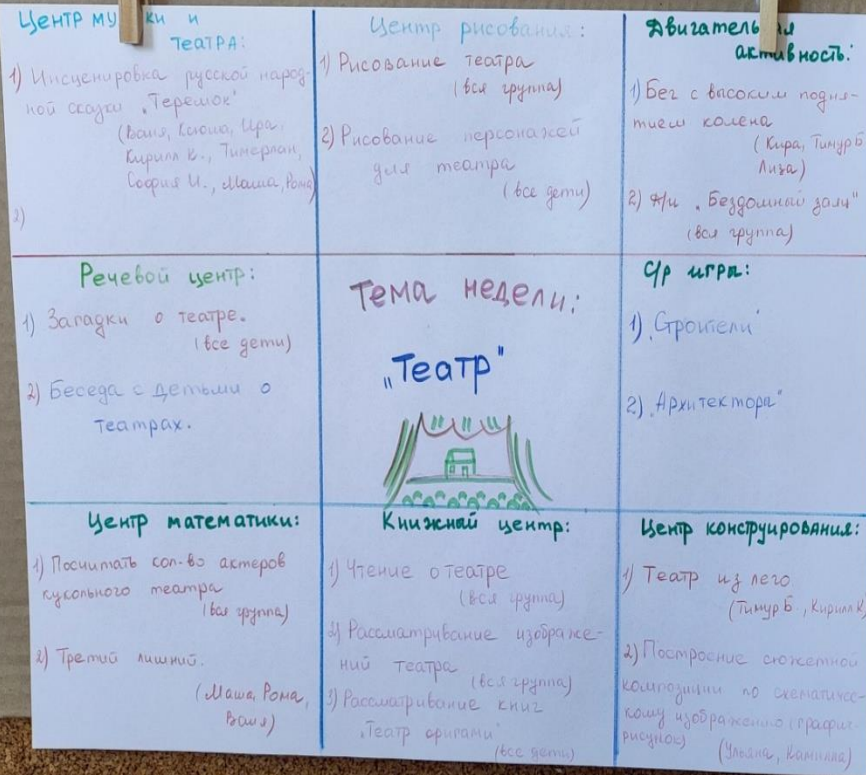 Центр му ки и
театра:
1) Инсценировка русской народ-
ной сказки „Теремок"
(Ваня, Ксюша, Ира,
Кирилл К., Тимерлан,
София И., Маша, Рома)
2)
Центр рисования:
1) Рисование театра
(вся группа)
2) Рисование персонажей
для театра
(все дети)
Двигательная
активность:
1) Бег с высоким подня-
тием колена
(Кира, Тимур Б
Лиза)
2) П/и „Бездомный заяц"
(вся группа)
Речевой центр:
1) Загадки о театре.
(все дети)
2) Беседа с детьми о
театрах.
Тема недели:
„Театр"
С/р игра:
1) „Строители"
2) „Архитектора"
Центр математики:
1) Посчитать кол-во актеров
кукольного театра
(вся группа)
2) Третий лишний.
(Маша, Рома,
Ваня)
Книжный центр:
1) Чтение о театре
(вся группа)
2) Рассматривание изображе-
ний театра
(вся группа)
3) Рассматривание книг
„Театр оригами"
(все дети)
Центр конструирования:
1) Театр из лего.
(Тимур Б, Кирилл К
2) Построение сюжетной
композиции по схематичес-
кому изображению (график.
рисунок)
(Ульяна, Камилла)